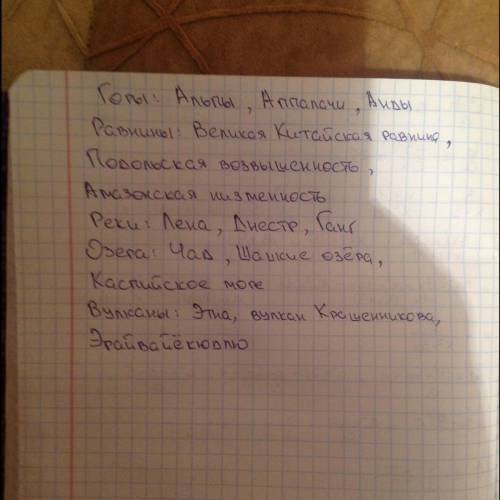 Горы: Альпы, Аппалачи, Анды
Равнины: Великая Китайская равнина,
Подольская возвышенность,
Амазонская низменность
Реки: Лена, Днестр, Ганг
Озера: Чад, Шацкие озёра,
Каспийское море
Вулканы: Этна, вулкан Крашенникова,
Эгайвайёкюдлю